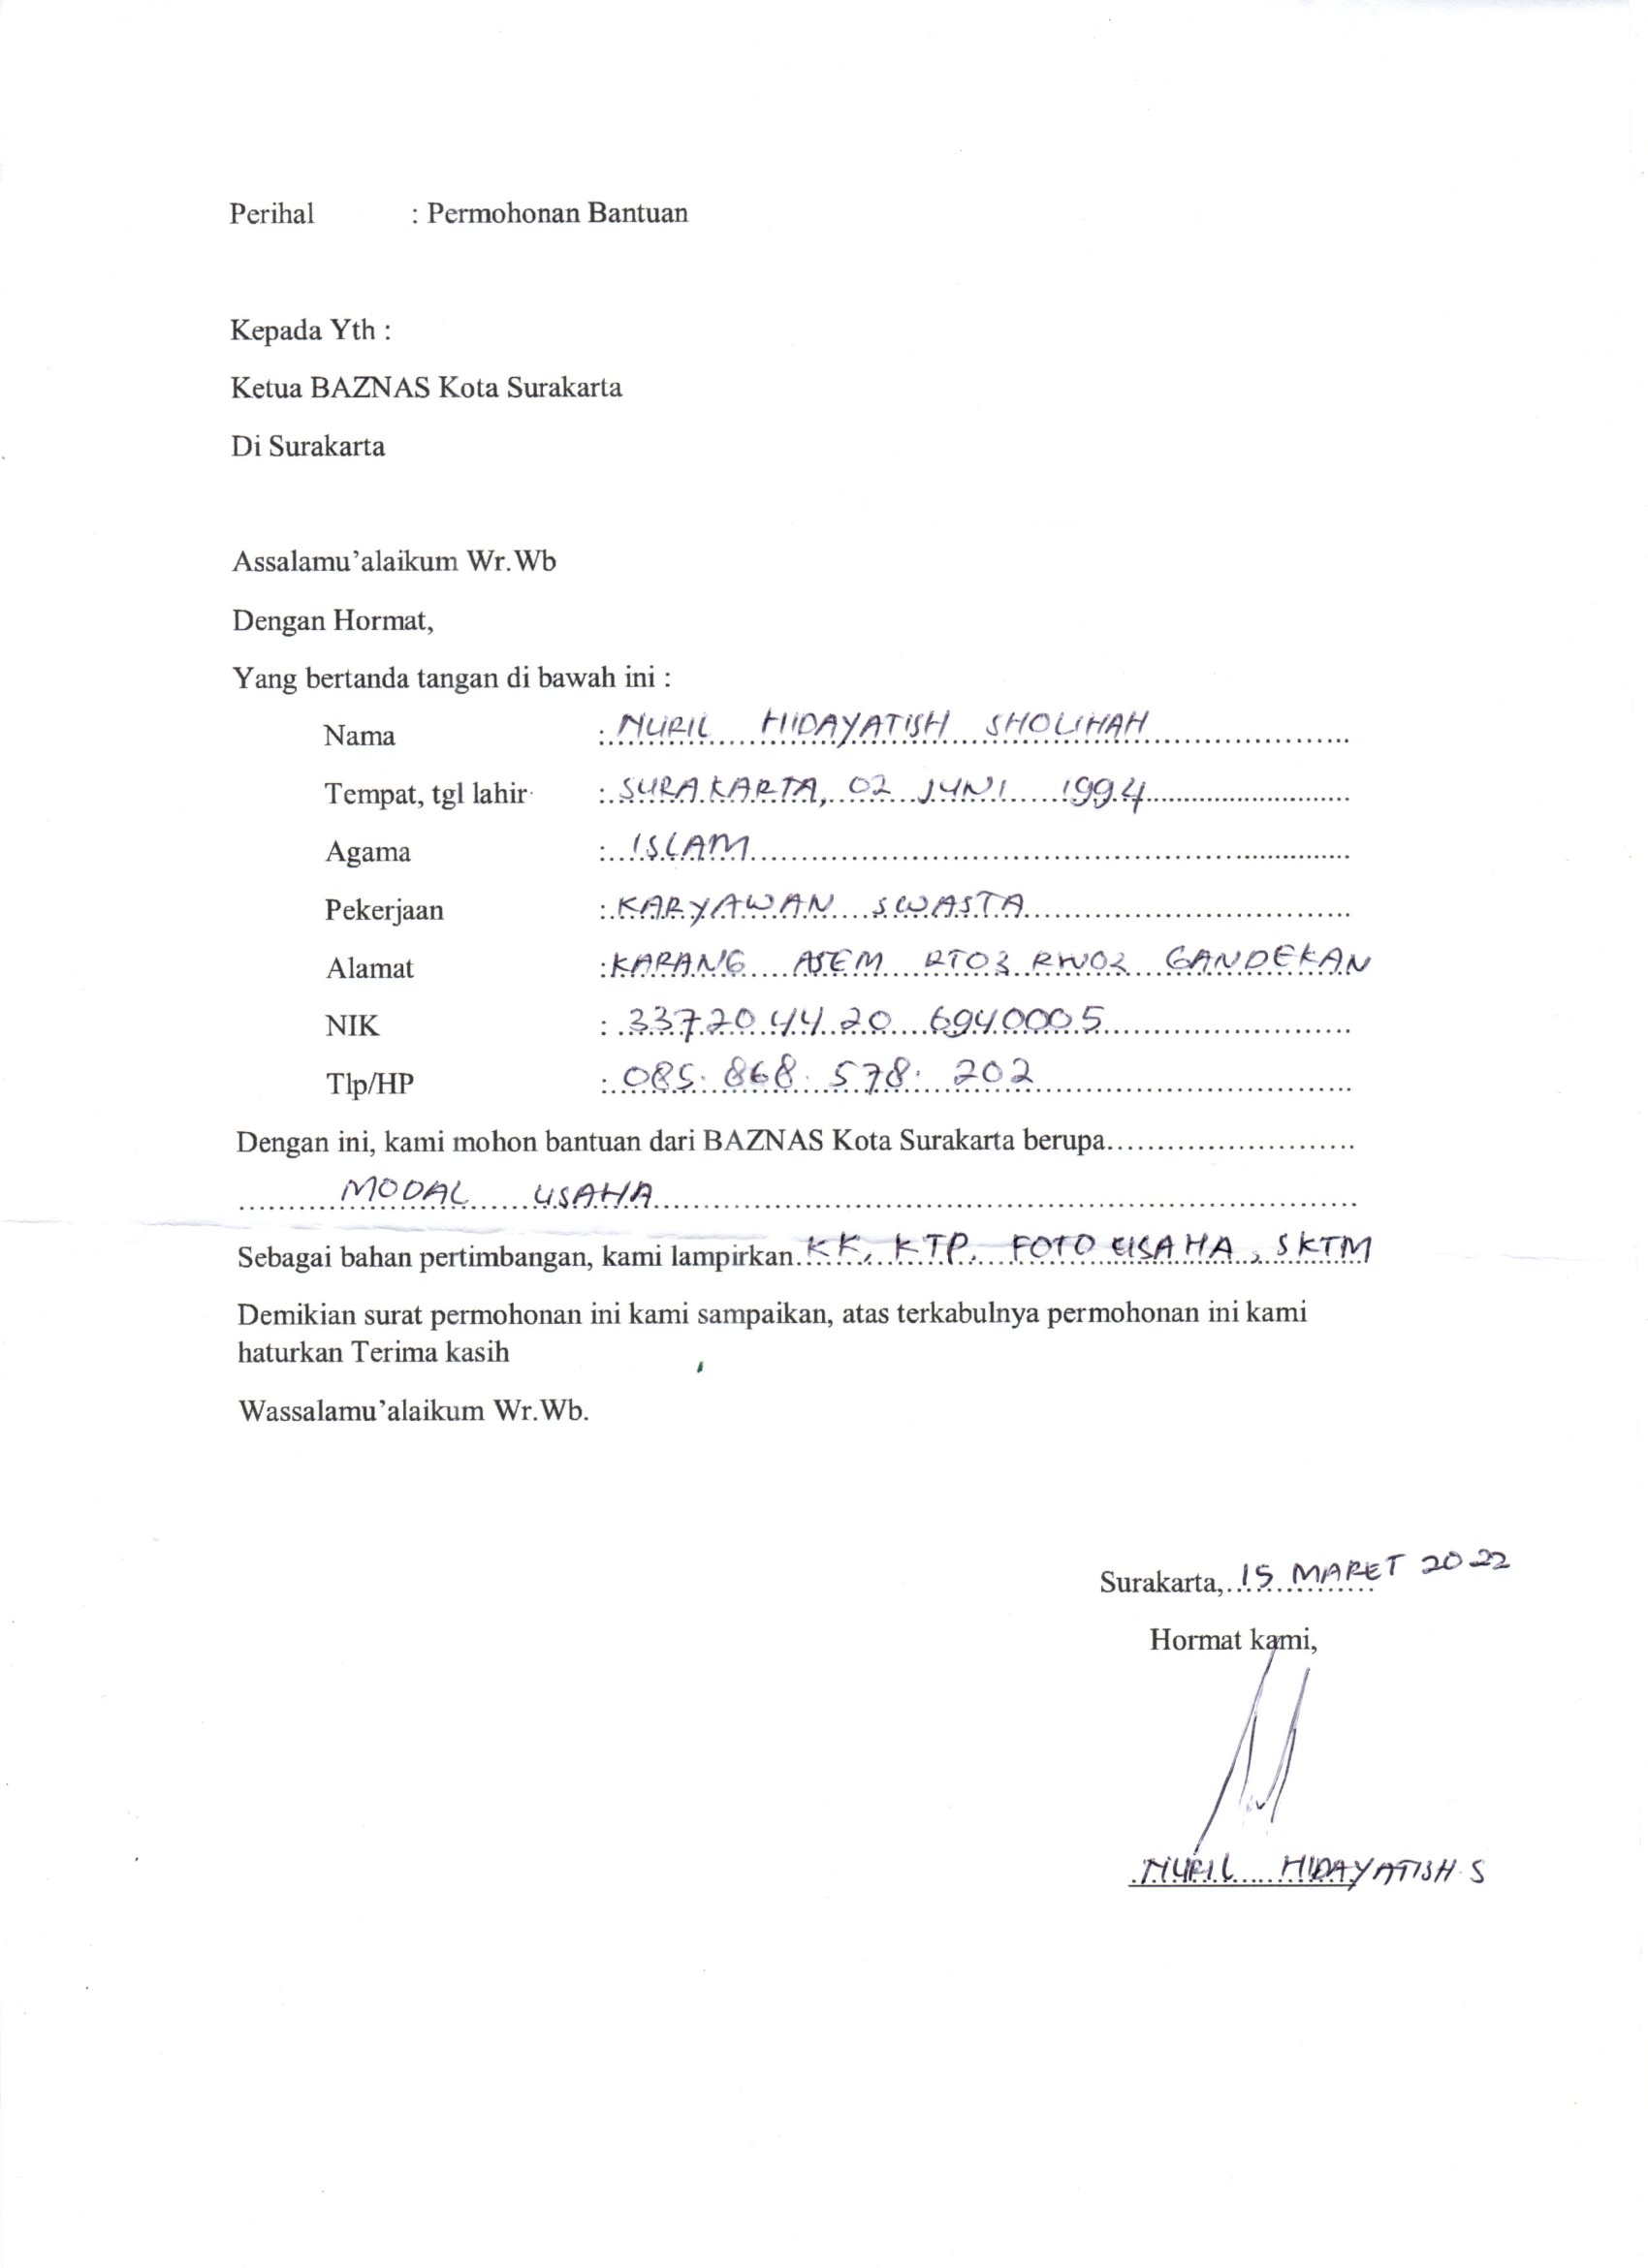 Perihal : Permohonan Bantuan
Kepada Yth :
Ketua BAZNAS Kota Surakarta
Di Surakarta
Assalamu’alaikum Wr.Wb
Dengan Hormat,
Yang bertanda tangan di bawah ini :
Nama : NURIL HIDAYATISH SHOLIHAH
Tempat, tgl lahir : SURAKARTA, 02 JUNI 1994
Agama : ISLAM
Pekerjaan : KARYAWAN SWASTA
Alamat : KARANG ASEM RT03 RW02 GANDEKAN
NIK : 33720 44 20 6940005
Tlp/HP : 085. 868. 578. 202
Dengan ini, kami mohon bantuan dari BAZNAS Kota Surakarta berupa
MODAL USAHA
Sebagai bahan pertimbangan, kami lampirkan KK, KTP, FOTO USAHA, SKTM
Demikian surat permohonan ini kami sampaikan, atas terkabulnya permohonan ini kami
haturkan Terima kasih
Wassalamu’alaikum Wr.Wb.
Surakarta, 15 MARET 2022
Hormat kami,
NURIL HIDAYATISH S